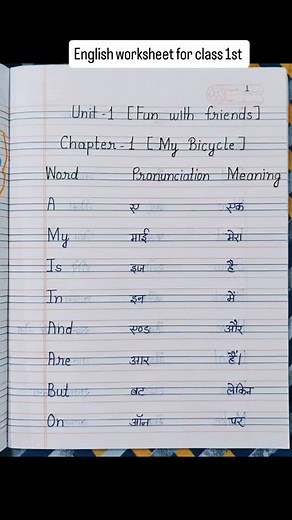 English worksheet for class 1st
1
Unit-1 [Fun with friends]
Chapter-1 [My Bicycle]
Word Pronunciation Meaning
A ए एक
My माई मेरा
Is इज है
In इन में
And एण्ड और
Are आर हैं।
But बट लेकिन
On ऑन पर